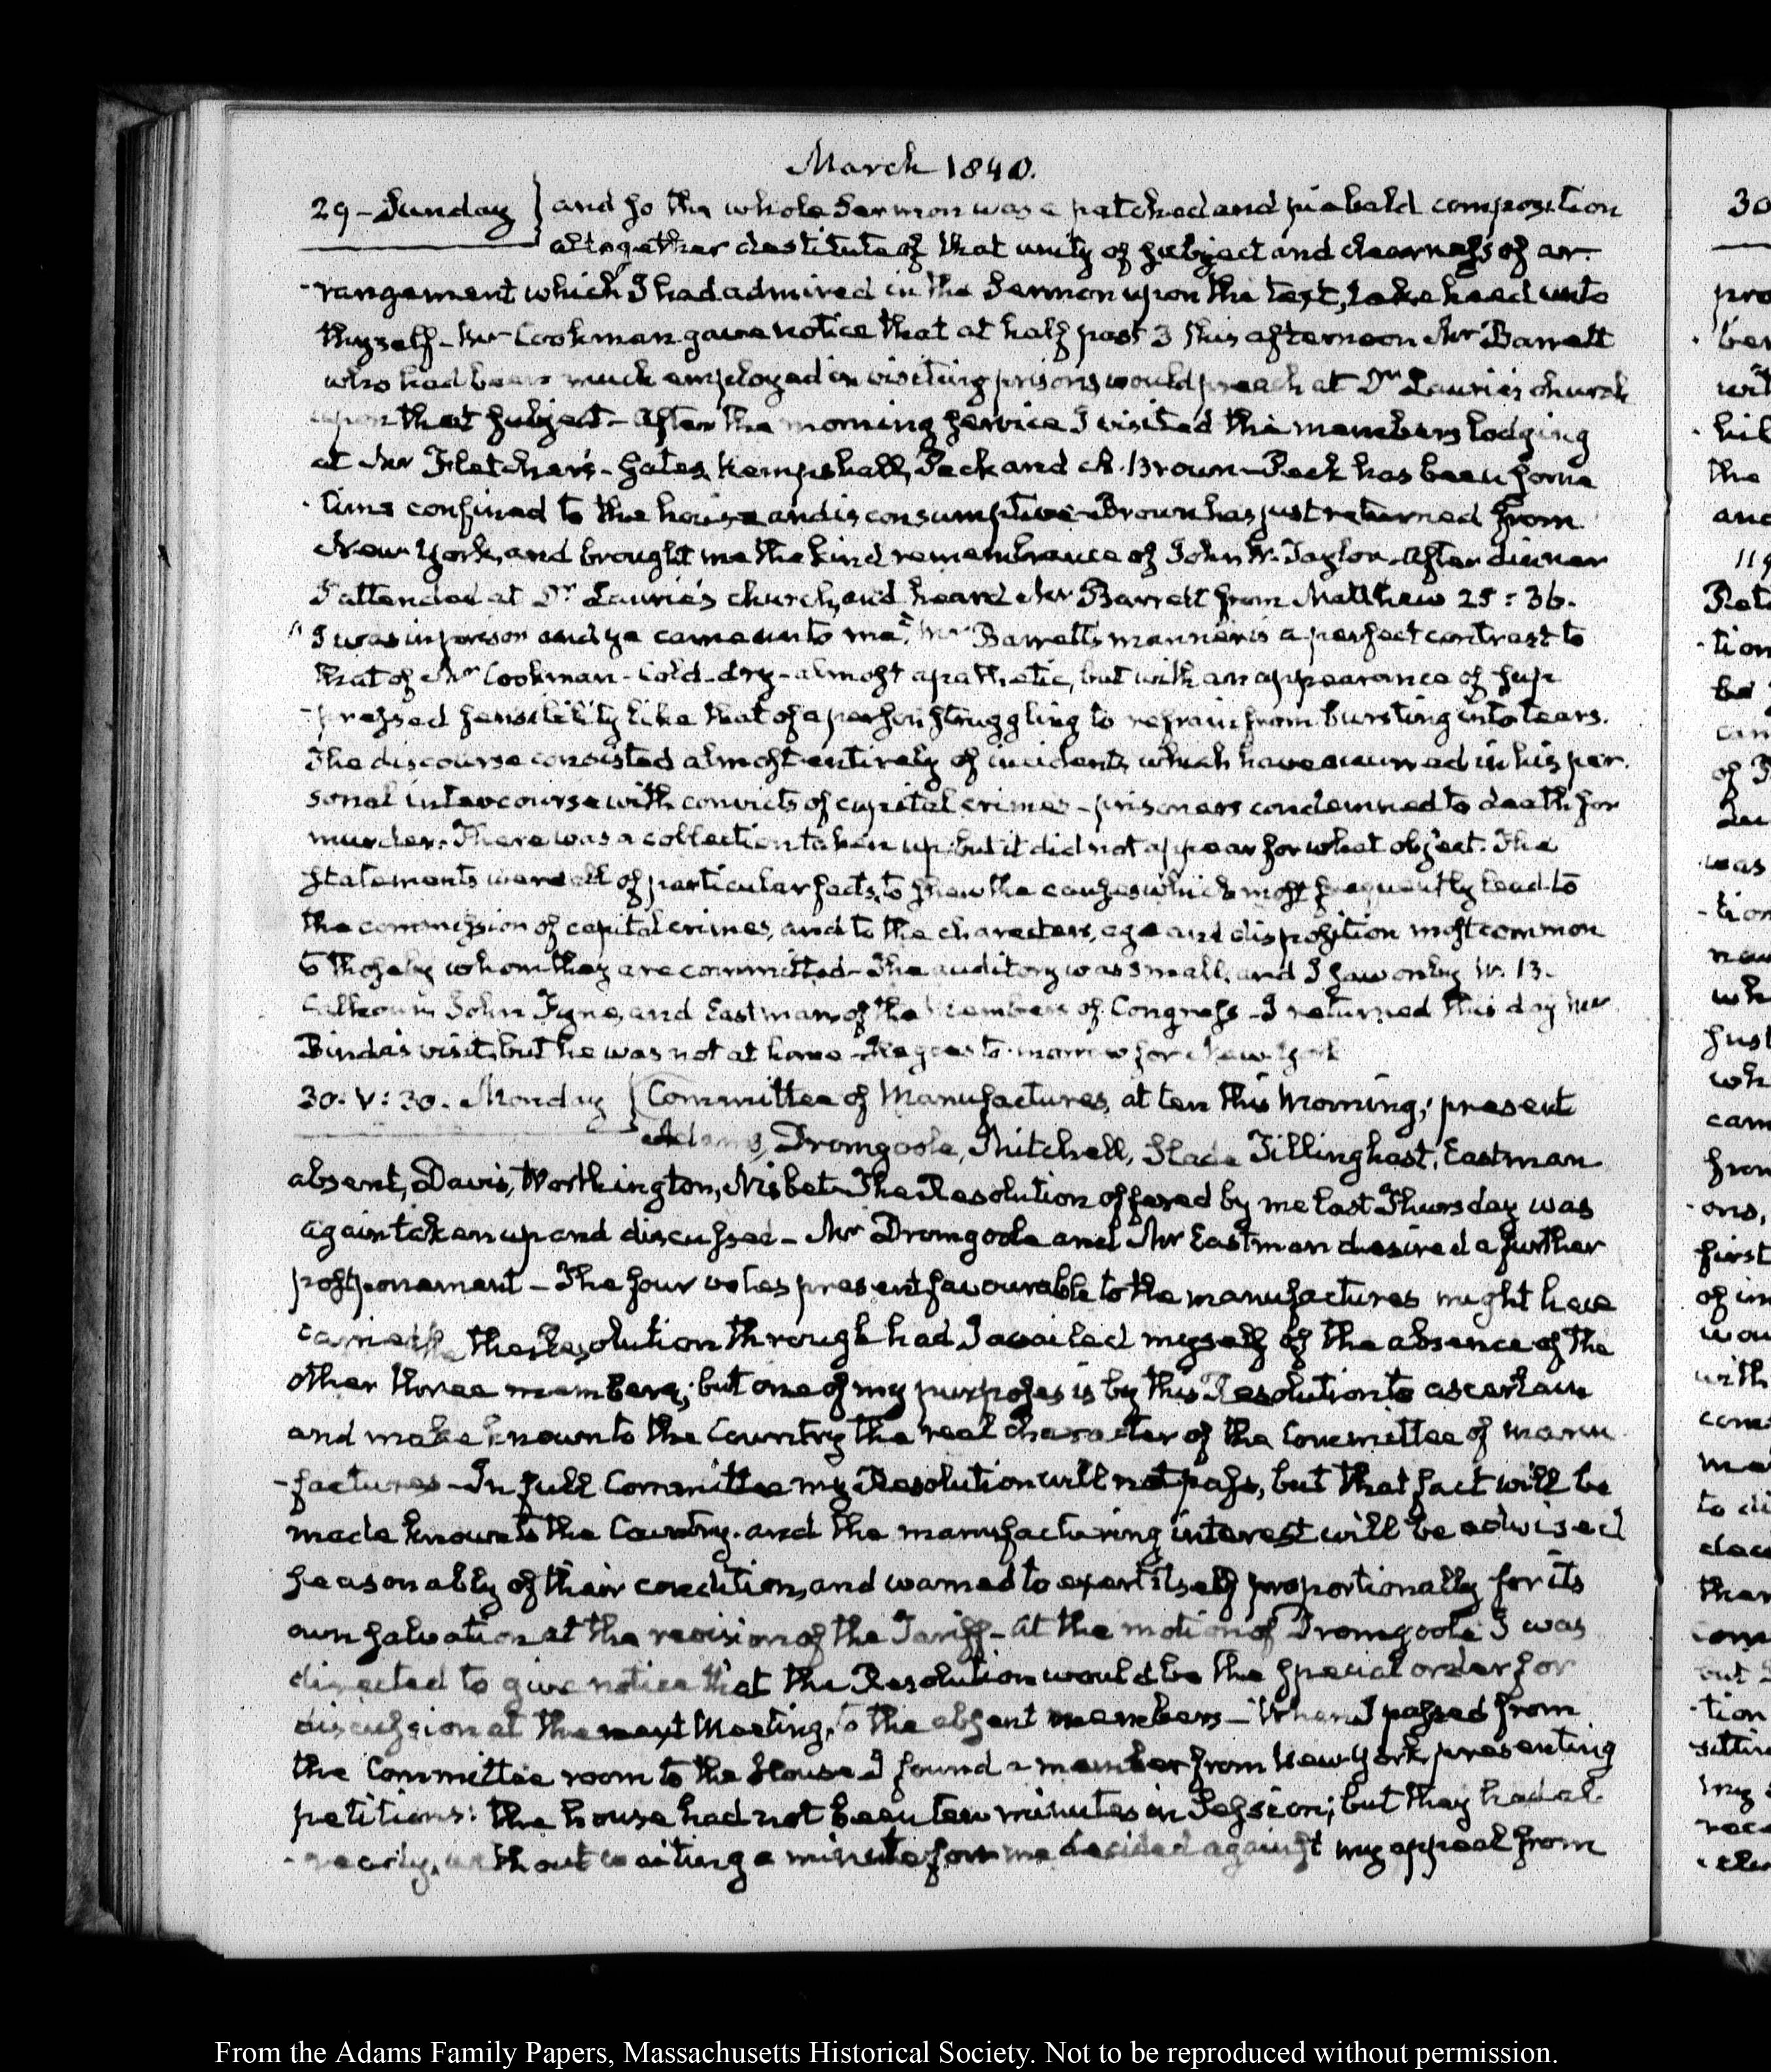 March 1840.
29 – Sunday } and so the whole Sermon was a patched and piebald composition
altogether destitute of that unity of subject and clearness of ar-
-rangement which I had admired in the Sermon upon the text, take heed unto
thyself – Mr Cookman gave notice that at half past 3 this afternoon Mr Barrett
who had been much employed in visiting prisons, would preach at Dr Laurie's church
upon that subject – After the morning service I visited the members lodging
at Mr Fletcher's – Gates, Kempshall, Peck and A. Brown – Peck has been some
-time confined to the house and is consumptive – Brown has just returned from
New-York, and brought me the kind remembrance of John W. Taylor. After dinner
I attended at Dr Laurie's church, and heard Mr Barrett from Matthew 25: 36.
"I was in prison and ye came unto me". Mr Barrett's manner is a perfect contrast to
that of Mr Cookman – Cold – dry – almost apathetic, but with an appearance of sup
-pressed sensibility like that of a person struggling to refrain from bursting into tears.
The discourse consisted almost entirely of incidents which have occurred in his per-
sonal intercourse with convicts of capital crimes – prisoners condemned to death for
murder. There was a collection taken up: but it did not appear for what object. The
statements were all of particular facts, to shew the causes which most frequently lead to
the commission of capital crimes, and to the characters, age and disposition most common
to those by whom they are committed – The auditory was small, and I saw only W. B.
Calhoun, John Fyne, and Eastman of the members of Congress – I returned this day Mr
Binda's visit, but he was not at home – He goes to-morrow for New-York
30. V: 30. Monday { Committee of Manufactures, at ten this Morning; present
Adams, Dromgoole, Mitchell, Slade Tillinghast, Eastman
absent, Davis, Worthington, Nisbet – The Resolution offered by me last Thursday was
again taken up and discussed – Mr Dromgoole and Mr Eastman desired a further
postponement – The four votes present favourable to the manufactures might have
carried the Resolution through had I availed myself of the absence of the
other three members; but one of my purposes is by this Resolution to ascertain
and make known to the Country the real character of the Committee of Manu
-factures – In full Committee my Resolution will not pass, but that fact will be
made known to the Country, and the manufacturing interest will be advised
seasonably of their condition, and warned to exert itself proportionally for its
own salvation at the revision of the Tariff – At the motion of Dromgoole I was
directed to give notice that the Resolution would be the special order for
discussion at the next Meeting, to the absent members – When I passed from
the Committee room to the House I found a member from New-York presenting
petitions: the house had not been ten minutes in Session; but they had al
-ready, without waiting a minute for me decided against my appeal from
30
pro
wil
the
and
Pet
tion
was
wh
just
wh
cam
from
ons,
first
of im
with
to di
but
tion
my
From the Adams Family Papers, Massachusetts Historical Society. Not to be reproduced without permission.